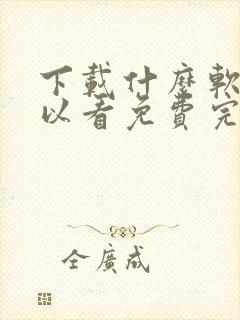 下載什麼軟
以看免費完
仝廣成